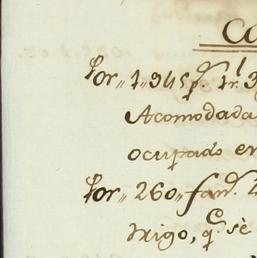 Ca
Por „ 1 „ 345 p.s 1 r.l 3
Acomodada
ocupado en
Por „ 260 „ fan.s
trigo, q.e sè